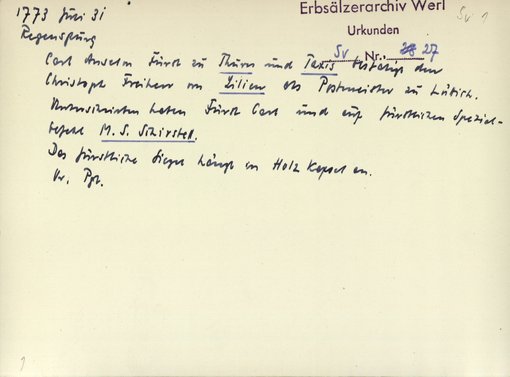 1773 Juni 31
Regensburg
Erbsälzerarchiv Werl
Urkunden
Sv Nr. 27
Sv 1
Carl Anselm Fürst zu Thurn und Taxis bestätigt den
Christoph Freiherr von Lilien als Postmeister zu Lüttich.
Unterschrieben haben Fürst Carl und auf fürstlichen Spezial-
befehl M. S. Schuster.
Das fürstliche Siegel hängt in Holz Kapsel an.
Or. Pgt.